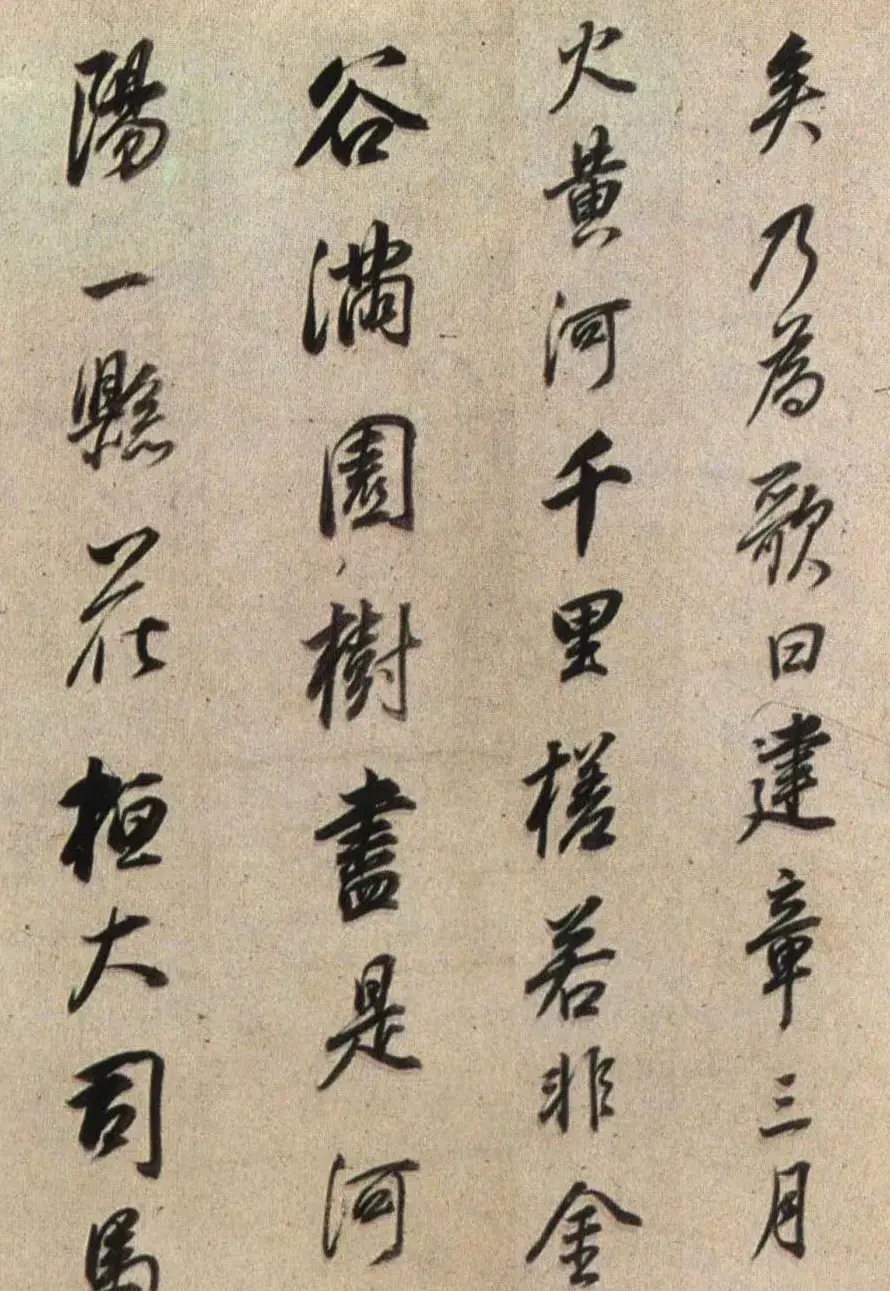 矣乃為歌曰建章三月
火黃河千里槎若非金
谷滿園樹盡是河
陽一縣花桓大司馬